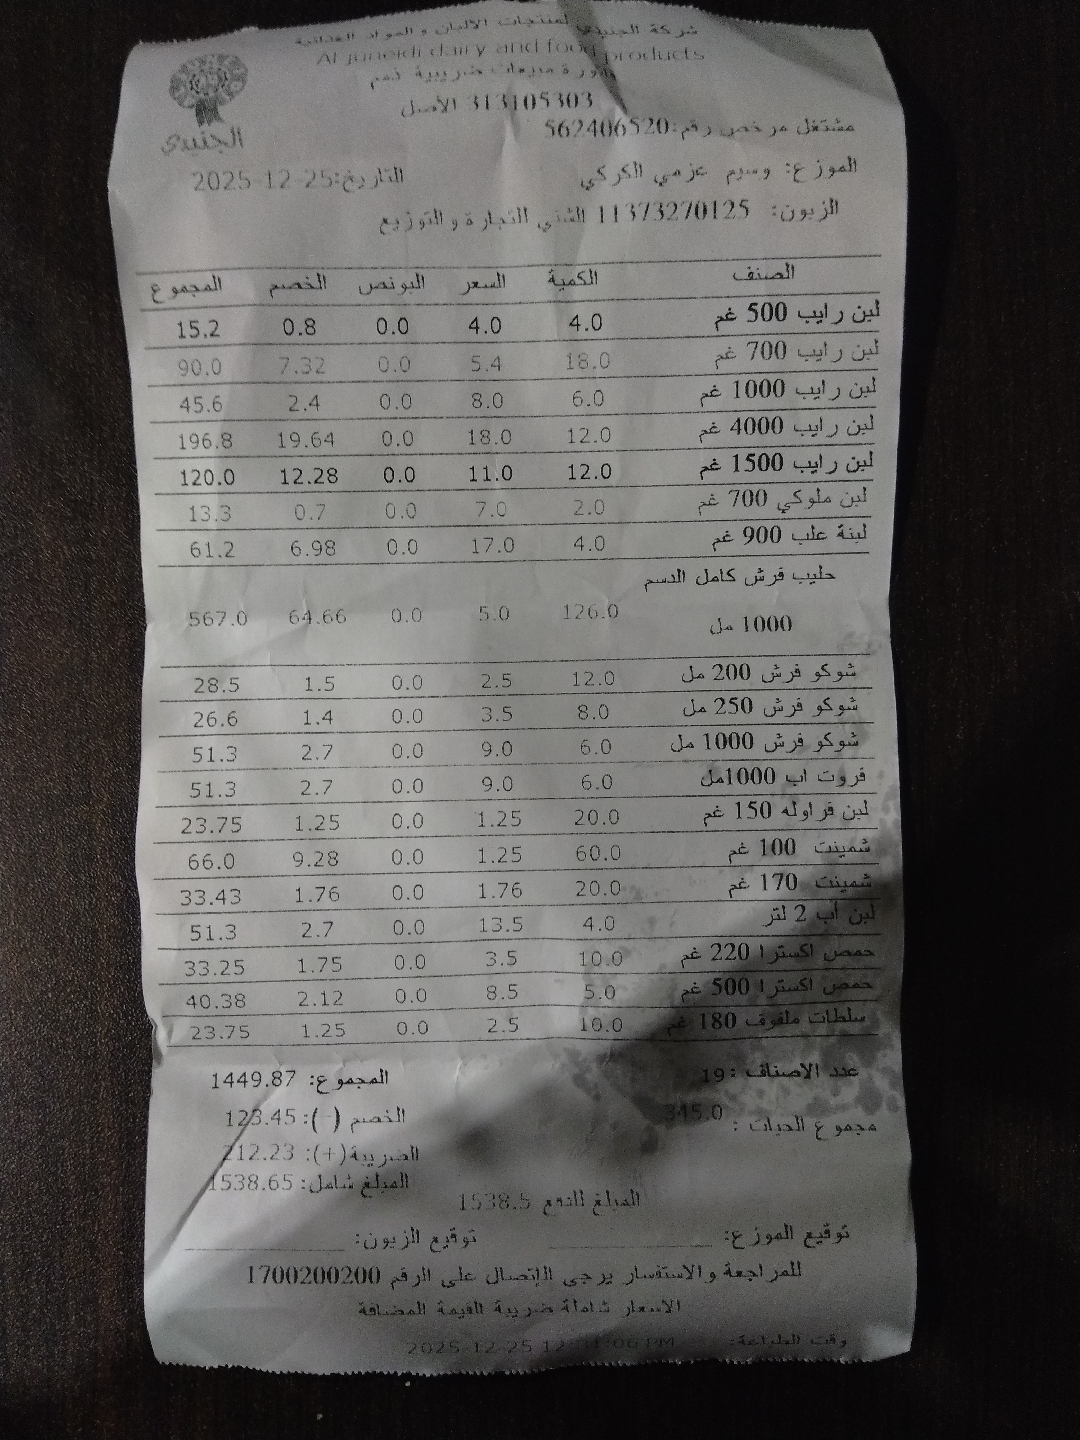 شركة الجنيدي لمنتجات الالبان و المواد الغذائية
Al juneidi dairy and food products
الجنيدي
فاتورة مبيعات ضريبية ذمم
313105303 الأصل
مشتغل مرخص رقم:562406520
الموزع: وسيم عزمي الكركي التاريخ:2025-12-25
الزبون: 11373270125 للتجارة والتوزيع
الصنف الكمية السعر البونص الخصم المجموع
لبن رايب 500 غم 4.0 4.0 0.0 0.8 15.2
لبن رايب 700 غم 18.0 5.4 0.0 7.32 90.0
لبن رايب 1000 غم 6.0 8.0 0.0 2.4 45.6
لبن رايب 4000 غم 12.0 18.0 0.0 19.64 196.8
لبن رايب 1500 غم 12.0 11.0 0.0 12.28 120.0
لبن ملوكي 700 غم 2.0 7.0 0.0 0.7 13.3
لبنة علب 900 غم 4.0 17.0 0.0 6.98 61.2
حليب فرش كامل الدسم
1000 مل 126.0 5.0 0.0 64.66 567.0
شوكو فرش 200 مل 12.0 2.5 0.0 1.5 28.5
شوكو فرش 250 مل 8.0 3.5 0.0 1.4 26.6
شوكو فرش 1000 مل 6.0 9.0 0.0 2.7 51.3
فروت اب 1000مل 6.0 9.0 0.0 2.7 51.3
لبن فراوله 150 غم 20.0 1.25 0.0 1.25 23.75
شمينت 100 غم 60.0 1.25 0.0 9.28 66.0
شمينت 170 غم 20.0 1.76 0.0 1.76 33.43
لبن أب 2 لتر 4.0 13.5 0.0 2.7 51.3
حمص اكسترا 220 غم 10.0 3.5 0.0 1.75 33.25
حمص اكسترا 500 غم 5.0 8.5 0.0 2.12 40.38
سلطات ملفوف 180 غم 10.0 2.5 0.0 1.25 23.75
عدد الاصناف :19 المجموع: 1449.87
مجموع الحبات : 345.0 الخصم (-): 123.45
الضريبة(+): 212.23
المبلغ شامل: 1538.65
المبلغ للدفع 1538.5
توقيع الموزع: توقيع الزبون:
للمراجعة والاستفسار يرجى الإتصال على الرقم 1700200200
الاسعار شاملة ضريبة القيمة المضافة
وقت الطباعة: 2025-12-25 PM